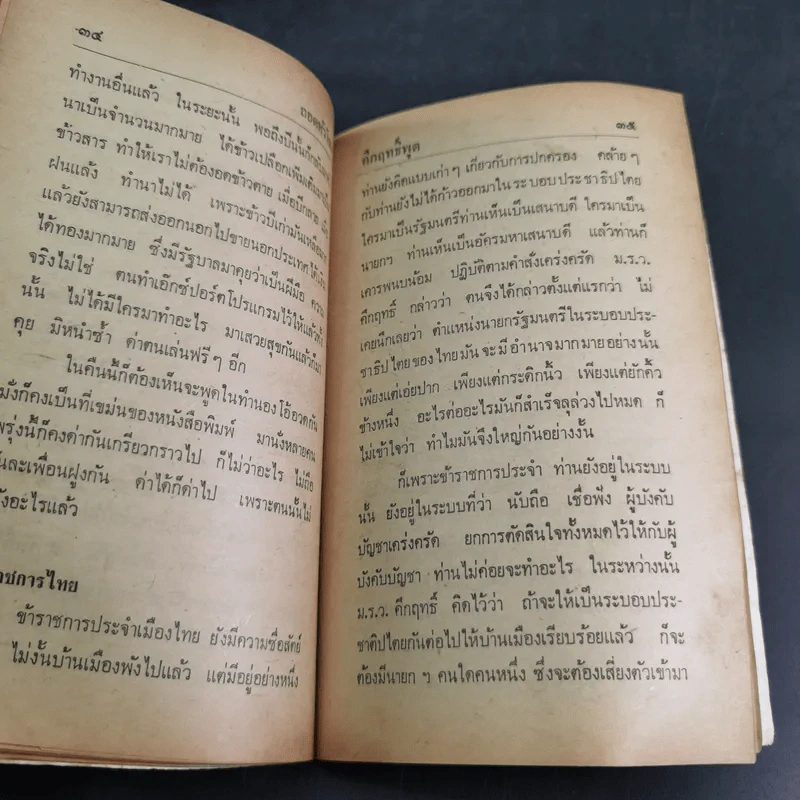 ๓๔
ทำงานอื่นแล้ว ในระยะนั้น พอถึงปีนั้นก็
นาเป็นจำนวนมากมาย ได้ข้าวเปลือกเพิ่มเติม
ข้าวสาร ทำให้เราไม่ต้องอดข้าวตาย เมื่อปีกลาย
ฝนแล้ง ทำนาไม่ได้ เพราะข้าวปีเก่ามันเหลือ
แล้วยังสามารถส่งออกนอกไปขายนอกประเทศได้เงิน
ได้ทองมากมาย ซึ่งมีรัฐบาลมาคุยว่าเป็นฝีมือ ความ
จริงไม่ใช่ ตนทำเอ๊กซ์ปอร์ตโปรแกรมไว้ให้แล้วทั้ง
นั้น ไม่ได้มีใครมาทำอะไร มาเสวยสุขกันแล้วก็มา
คุย มิหนำซ้ำ ด่าตนเล่นฟรีๆ อีก
ในคืนนี้ก็ต้องเห็นจะพูดในทำนองโอ้อวดกัน
มั่งก็คงเป็นที่เขม่นของหนังสือพิมพ์ มานั่งหลายคน
พรุ่งนี้ก็คงด่ากันเกรียวกราวไป ก็ไม่ว่าอะไร ไม่ถือ
กันละเพื่อนฝูงกัน ด่าได้ก็ด่าไป เพราะตนนั้นไม่
อะไรแล้ว
ราชการไทย
ข้าราชการประจำเมืองไทย ยังมีความซื่อสัตย์
ไม่งั้นบ้านเมืองพังไปแล้ว แต่มีอยู่อย่างหนึ่ง
คึกฤทธิ์พูด ๓๕
ท่านยังคิดแบบเก่าๆ เกี่ยวกับการปกครอง คล้ายๆ
กับท่านยังไม่ได้ก้าวออกมาในระบอบประชาธิปไตย
ใครมาเป็นรัฐมนตรีท่านเห็นเป็นเสนาบดี ใครมาเป็น
นายกฯ ท่านเห็นเป็นอัครมหาเสนาบดี แล้วท่านก็
เคารพนบน้อม ปฏิบัติตามคำสั่งเคร่งครัด ม.ร.ว.
คึกฤทธิ์ กล่าวว่า ตนจึงได้กล่าวตั้งแต่แรกว่า ไม่
เคยนึกเลยว่า ตำแหน่งนายกรัฐมนตรีในระบอบประ-
ชาธิปไตยของไทยมันจะมีอำนาจมากมายอย่างนั้น
เพียงแต่เอ่ยปาก เพียงแต่กระดิกนิ้ว เพียงแต่ยักคิ้ว
ข้างหนึ่ง อะไรต่ออะไรมันก็สำเร็จลุล่วงไปหมด ก็
ไม่เข้าใจว่า ทำไมมันจึงใหญ่กันอย่างงั้น
ก็เพราะข้าราชการประจำ ท่านยังอยู่ในระบบ
นั้น ยังอยู่ในระบบที่ว่า นับถือ เชื่อฟัง ผู้บังคับ
บัญชาเคร่งครัด ยกการตัดสินใจทั้งหมดไว้ให้กับผู้
บังคับบัญชา ท่านไม่ค่อยจะทำอะไร ในระหว่างนั้น
ม.ร.ว. คึกฤทธิ์ คิดไว้ว่า ถ้าจะให้เป็นระบอบประ-
ชาธิปไตยกันต่อไปให้บ้านเมืองเรียบร้อยแล้ว ก็จะ
ต้องมีนายก ฯ คนใดคนหนึ่ง ซึ่งจะต้องเสี่ยงตัวเข้ามา